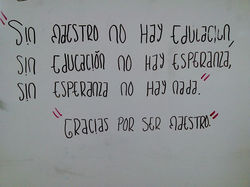 "Sin maestro no hay Educación,
Sin Educación no hay Esperanza,
Sin Esperanza no hay nada."
"Gracias por ser maestro."